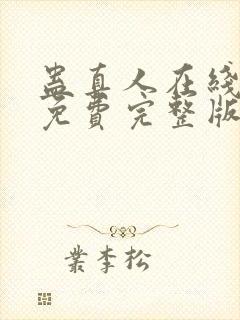 蛊真人在线
免費完整版
業李松